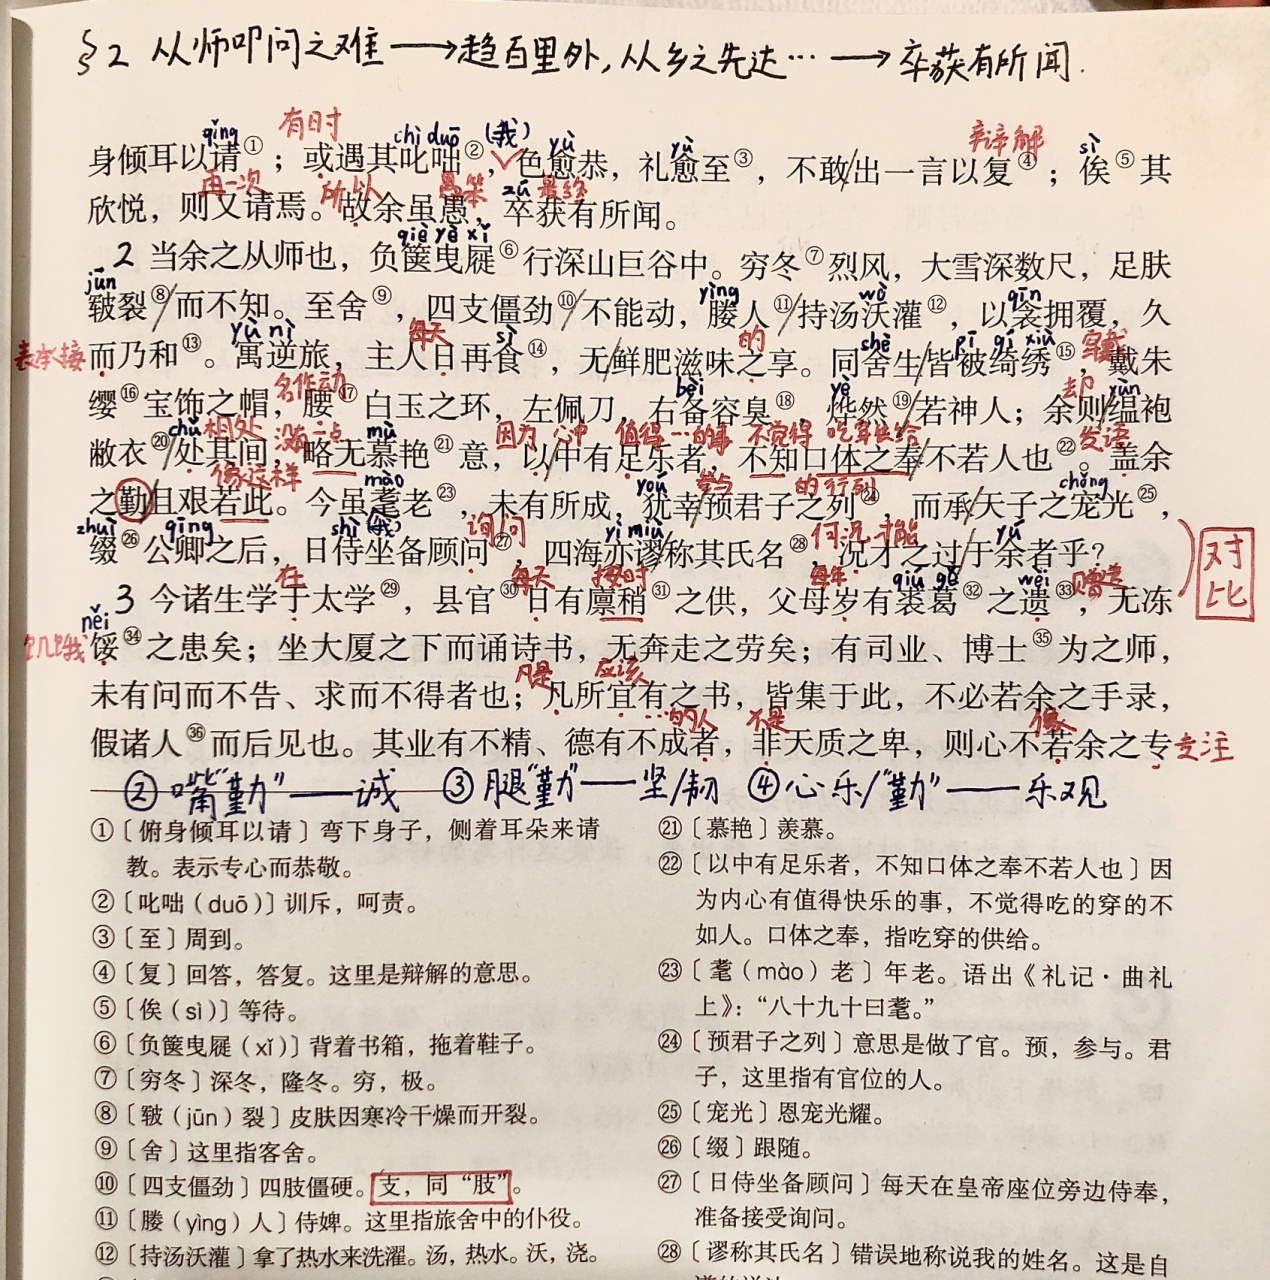 §2 从师叩问之难 → 趋百里外,从乡之先达… → 卒获有所闻.
qǐng 有日时 chì duō (我) yù yù 辩解 sì
身倾耳以请①；或遇其叱咄②，色愈恭，礼愈至③，不敢/出一言以复④；俟⑤其
再一次 所以 愚笨 zú 最终
欣悦，则又请焉。故余虽愚，卒获有所闻。
qiè yè xǐ
2 当余之从师也，负箧曳屣⑥行深山巨谷中。穷冬⑦烈风，大雪深数尺，足肤
jūn yìng wò qīn
皲裂⑧/而不知。至舍⑨，四支僵劲⑩/不能动，媵人⑪/持汤沃灌⑫，以衾拥覆，久
表承接 yù nì 每天 sì 的 shè pī qǐ xiù 穿戴
而乃和⑬。寓逆旅，主人日再食⑭，无/鲜肥滋味之享。同舍生/皆被绮绣⑮，戴朱
名作动 bèi yè 却 yùn
缨⑯宝饰之帽，腰⑰白玉之环，左佩刀，右备容臭⑱，烨然⑲/若神人；余则/缊袍
chǔ 相处 没有一点 mù 因为 心中 值得…的事 不觉得 吃穿供给 发语
敝衣⑳/处其间，略无慕艳㉑意，以/中有足乐者，不知口体之奉/不若人也㉒。盖余
像这样 mào yóu 参与 的行列 chǒng
之勤且艰若此。今虽耄老㉓，未有所成，犹幸/预君子之列㉔，而承/天子之宠光㉕，
zhuì qīng shì (我) 询问 yì miù 何况 才能 yú
缀㉖公卿之后，日侍坐备顾问㉗，四海亦谬称其氏名㉘，况才之过于余者乎？
对比
在 每天 按时 每年 qiú gě wèi 赠送
3 今诸生学于太学㉙，县官㉚日有廪稍㉛之供，父母岁有裘葛㉜之遗㉝，无冻
něi 饥饿
馁㉞之患矣；坐大厦之下而诵诗书，无奔走之劳矣；有司业、博士㉟为之师，
凡是 应该
未有问而不告、求而不得者也；凡所宜有之书，皆集于此，不必若余之手录，
…的人 不是 像
假诸人㊱而后见也。其业有不精、德有不成者，非天质之卑，则心不若余之专 专注
②嘴“勤”——诚 ③腿“勤”——坚/韧 ④心乐/“勤”——乐观
①〔俯身倾耳以请〕弯下身子，侧着耳朵来请
教。表示专心而恭敬。
②〔叱咄（duō）〕训斥，呵责。
③〔至〕周到。
④〔复〕回答，答复。这里是辩解的意思。
⑤〔俟（sì）〕等待。
⑥〔负箧曳屣（xǐ）〕背着书箱，拖着鞋子。
⑦〔穷冬〕深冬，隆冬。穷，极。
⑧〔皲（jūn）裂〕皮肤因寒冷干燥而开裂。
⑨〔舍〕这里指客舍。
⑩〔四支僵劲〕四肢僵硬。支，同“肢”。
⑪〔媵（yìng）人〕侍婢。这里指旅舍中的仆役。
⑫〔持汤沃灌〕拿了热水来洗濯。汤，热水。沃，浇。
㉑〔慕艳〕羡慕。
㉒〔以中有足乐者，不知口体之奉不若人也〕因
为内心有值得快乐的事，不觉得吃的穿的不
如人。口体之奉，指吃穿的供给。
㉓〔耄（mào）老〕年老。语出《礼记·曲礼
上》：“八十九十曰耄。”
㉔〔预君子之列〕意思是做了官。预，参与。君
子，这里指有官位的人。
㉕〔宠光〕恩宠光耀。
㉖〔缀〕跟随。
㉗〔日侍坐备顾问〕每天在皇帝座位旁边侍奉，
准备接受询问。
㉘〔谬称其氏名〕错误地称说我的姓名。这是自